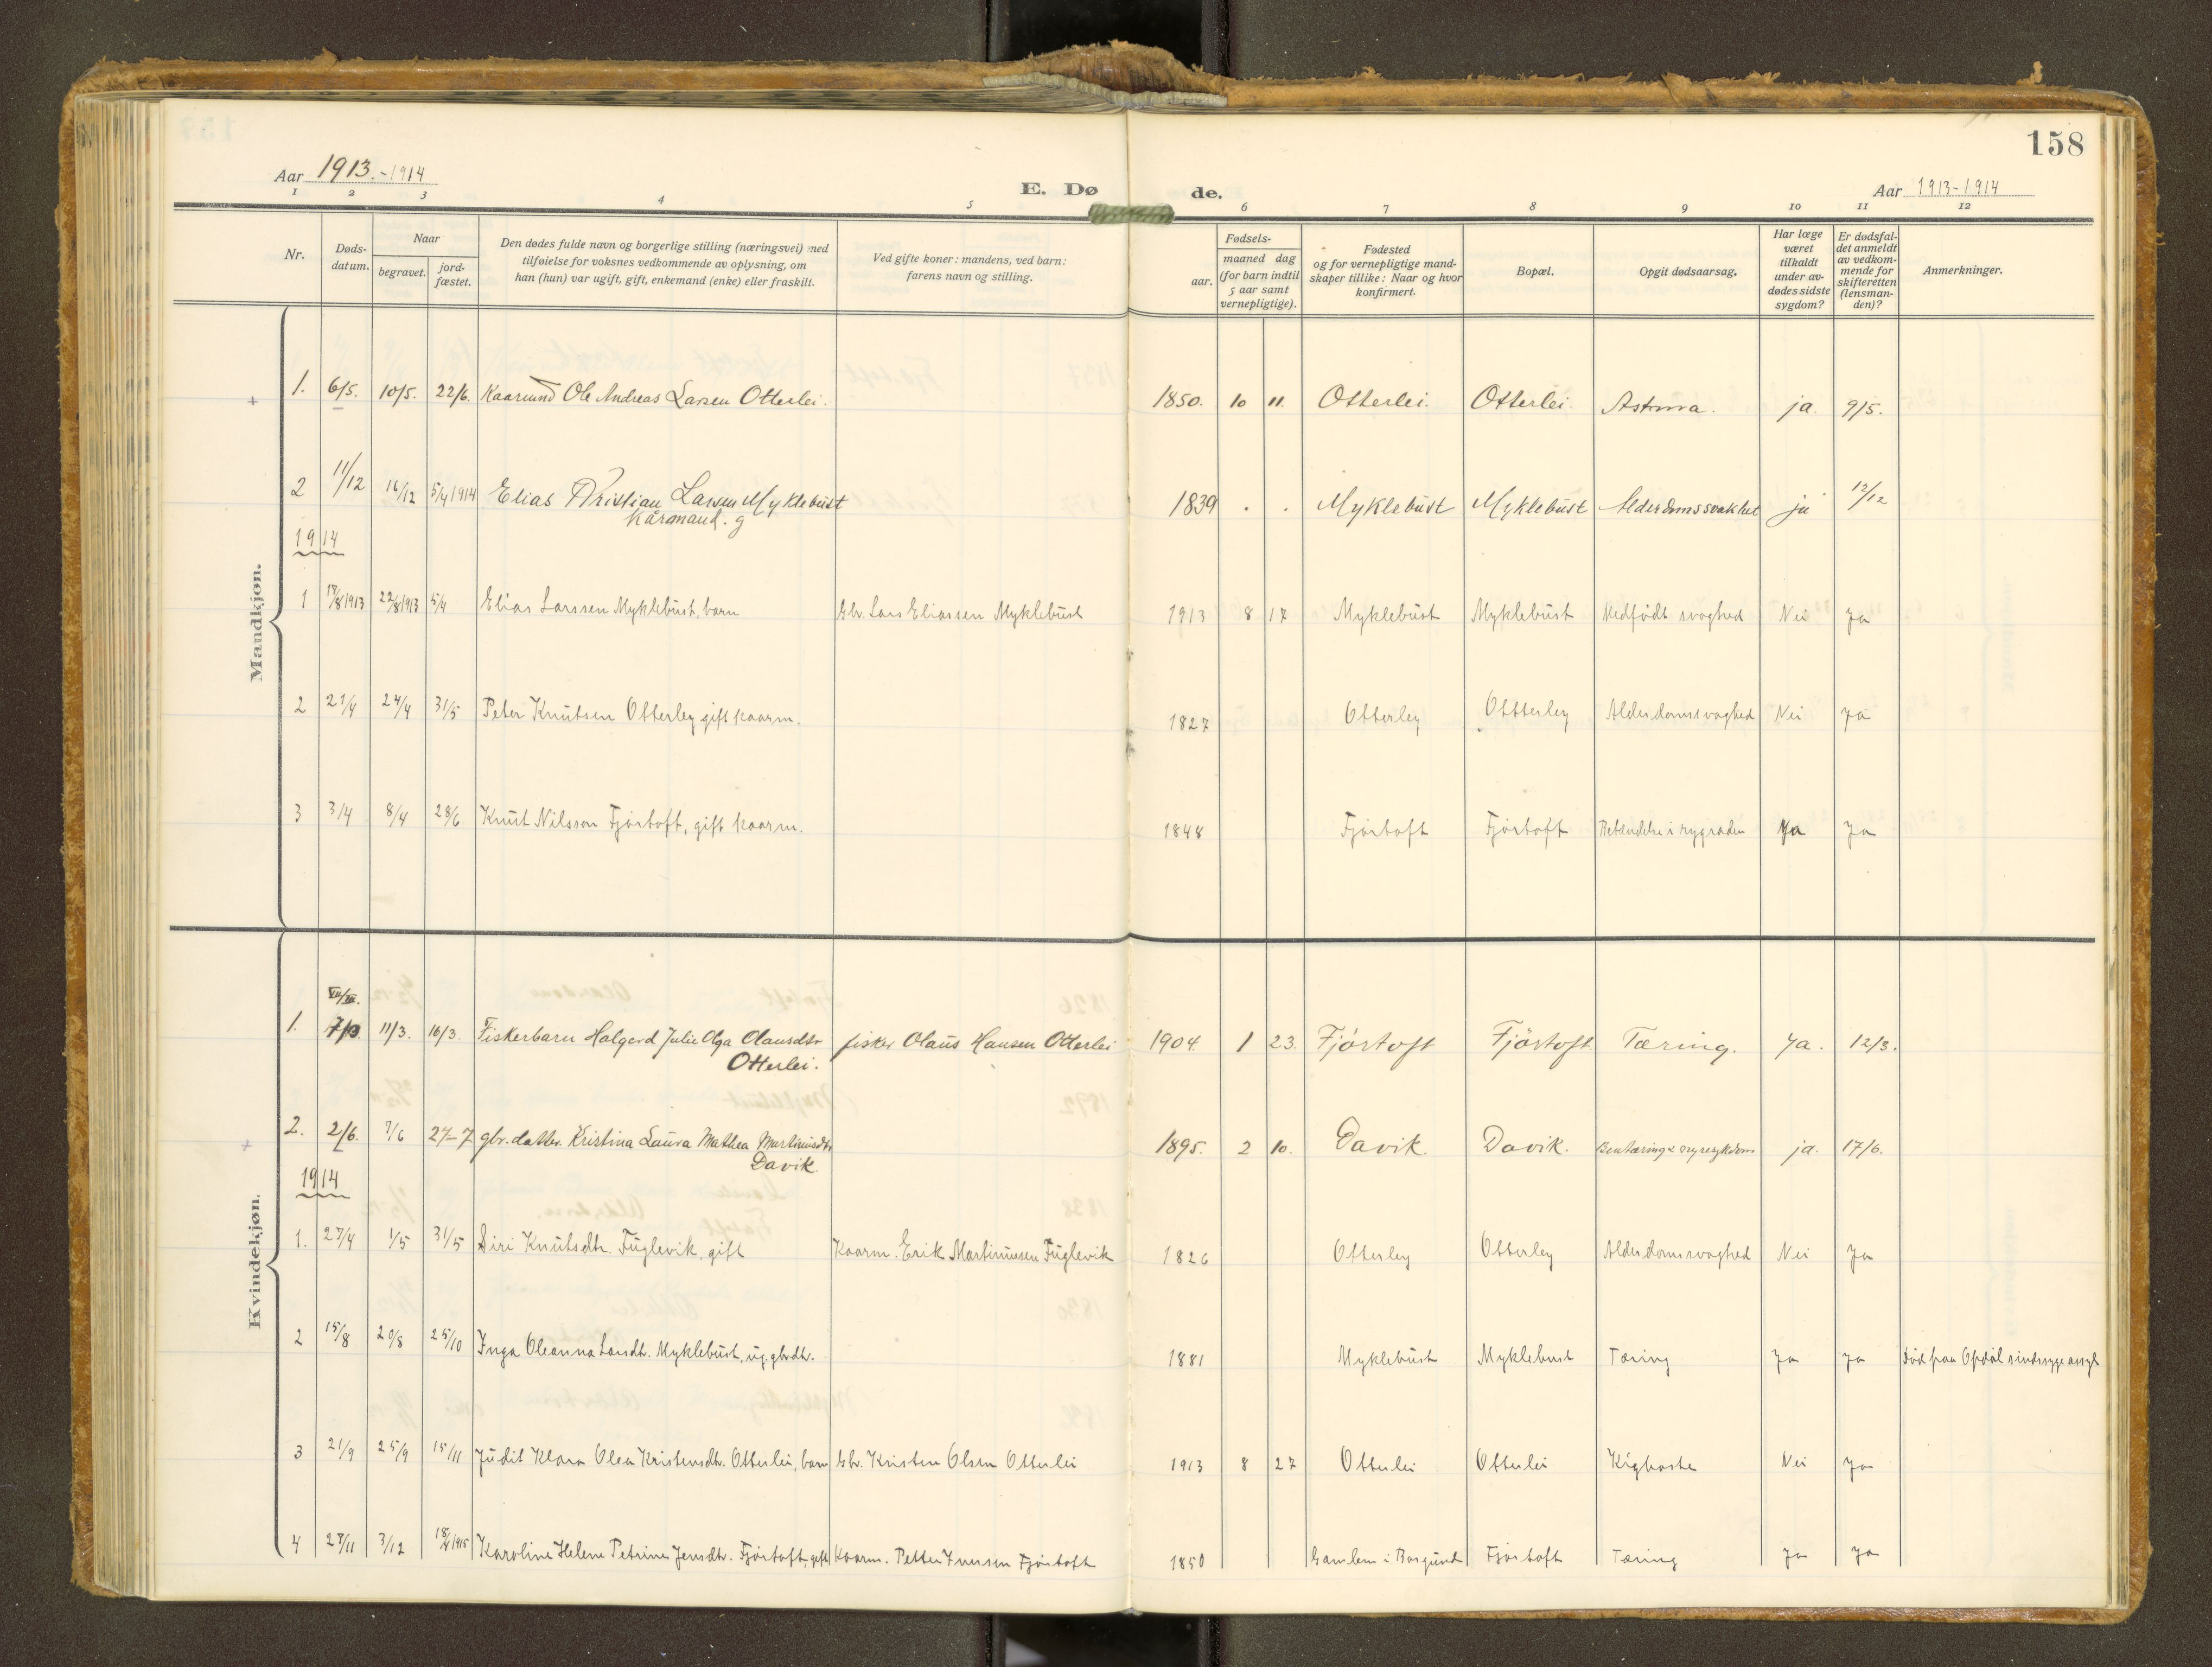 158
Aar 1913.-1914
E. Dø de.
Aar 1913-1914
1 2 3 4 5 6 7 8 9 10 11 12
Nr.
Døds-
datum.
Naar
begravet.
jord-
fæstet.
Den dødes fulde navn og borgerlige stilling (næringsvei) med
tilføielse for voksnes vedkommende av oplysning, om
han (hun) var ugift, gift, enkemand (enke) eller fraskilt.
Ved gifte koner: mandens, ved barn:
farens navn og stilling.
Fødsels-
aar.
maaned dag
(for barn indtil
5 aar samt
vernepligtige).
Fødested
og for vernepligtige mand-
skaper tillike: Naar og hvor
konfirmert.
Bopæl.
Opgit dødsaarsag.
Har læge
været
tilkaldt
under av-
dødes sidste
sygdom?
Er dødsfal-
det anmeldt
av vedkom-
mende for
skifteretten
(lensman-
den)?
Anmerkninger.
Mandkjøn.
1. 6/5. 10/5. 22/6. Kaarmand Ole Andreas Larsen Otterlei. 1850. 10 11. Otterlei. Otterlei. Astma. ja. 9/5.
2 11/12 16/12 5/4 1914 Elias Kristian Larsen Myklebust 1839 . . Myklebust Myklebust Alderdomssvakhet ja 12/12
Kårmand. g
1914
1 17/8 1913 22/8 1913 5/4 Elias Larssen Myklebust, barn Gbr. Lars Eliassen Myklebust 1913 8 17 Myklebust Myklebust Medfødt svaghed Nei Ja
2 21/4 24/4 31/5 Peter Knutsen Otterley gift kaarm. 1827 Otterley Ottterley Alderdomsvaghed Nei Ja
3 3/4 8/4 28/6 Knut Nilsson Fjørtoft, gift kaarm. 1848 Fjørtoft Fjørtoft Betændelse i rygraden Ja Ja
Kvindekjøn.
1. 7/3 11/3. 16/3. Fiskerbarn Halgerd Julie Olga Olausdtr fisker Olaus Hansen Otterlei 1904 1 23. Fjørtoft Fjørtoft Tæring. Ja. 12/3.
Otterlei.
2. 2/6. 7/6 27-7 gbr. datter. Kristina Laura Mathea Martinusdtr. 1895. 2 10. Davik. Davik. Bentæring & nyresykdom ja. 17/6.
Davik.
1914
1. 27/4 1/5 31/5 Siri Knutsdtr. Fuglevik, gift Kaarm. Erik Martinussen Fuglevik 1826 Otterley Otterley Alderdomsvaghed Nei Ja
2 15/8 20/8 25/10 Inga Oleanna Larsdtr. Myklebust, ug. gbrdtr. 1881 Myklebust Myklebust Tæring Ja Ja Død paa Opdøl sindssygeassyl
3 21/9 25/9 15/11 Judit Klara Olea Kristensdtr. Otterlei, barn Gbr. Kristen Olsen Otterlei 1913 8 27 Otterlei Otterlei Kighoste Nei Ja
4 28/11 3/12 18/4 1915 Karoline Helene Petrine Jensdtr. Fjørtoft, gift Kaarm. Petter Iversen Fjørtoft 1850 Gamlem i Borgund Fjørtoft Tæring Ja Ja